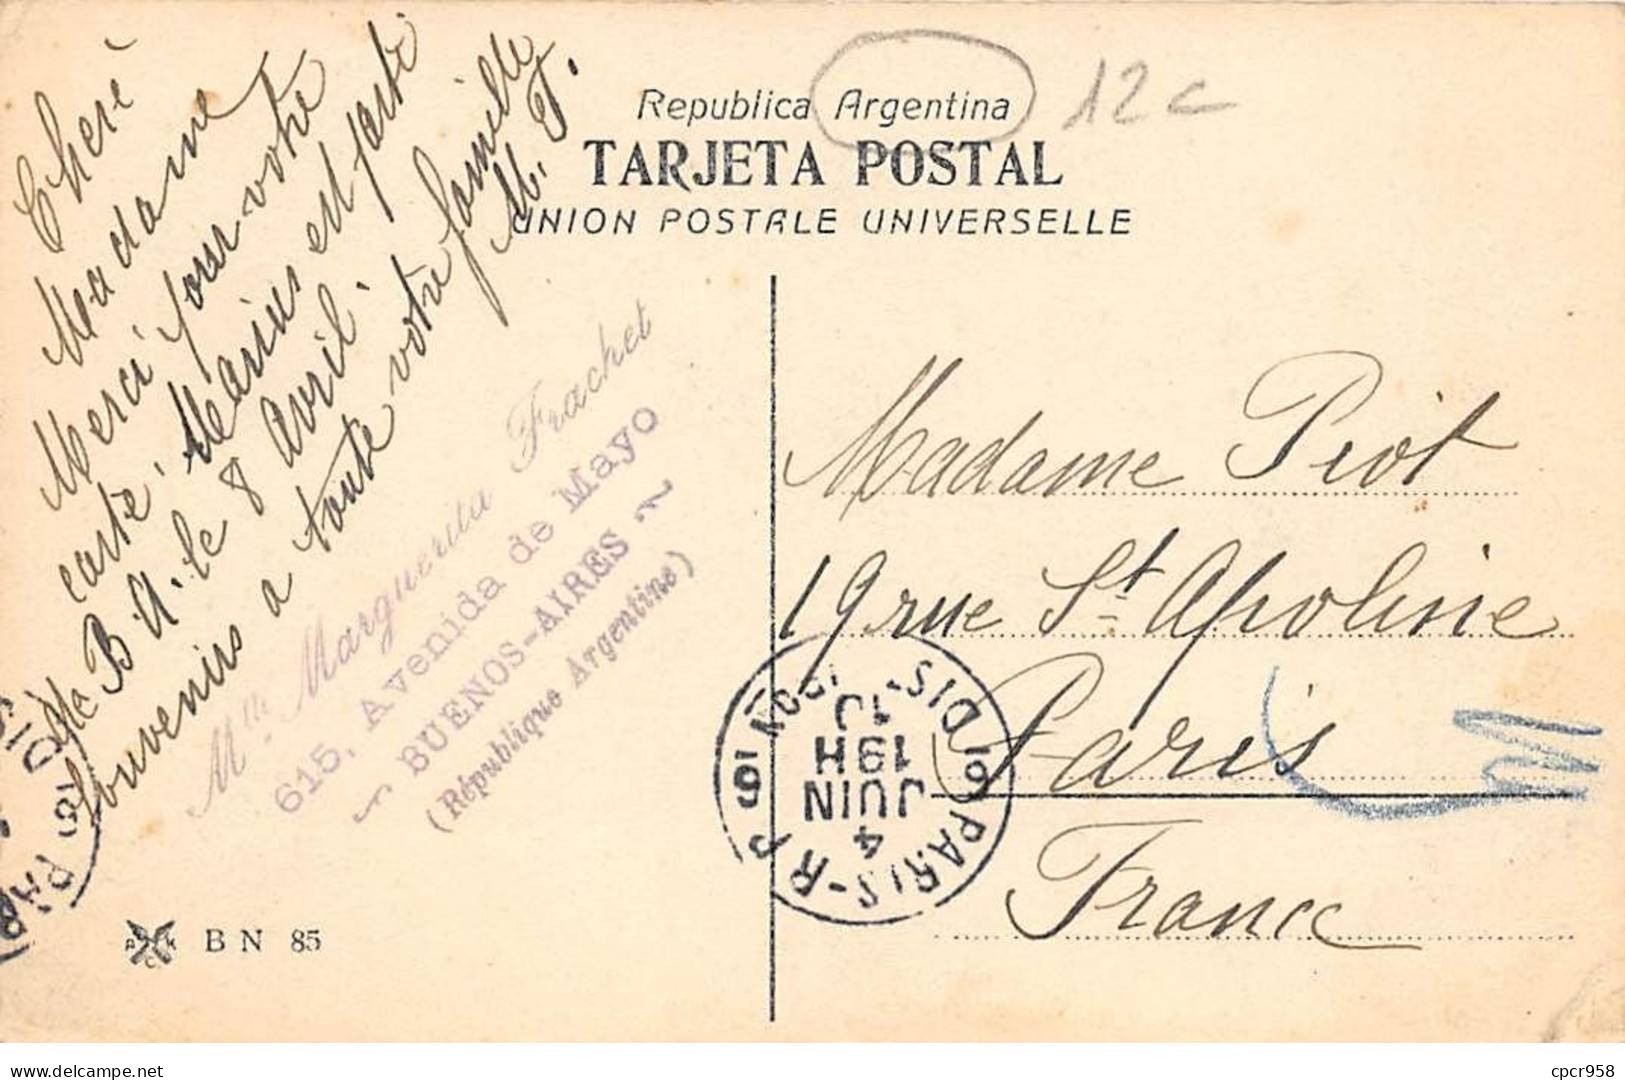 Republica Argentina
12c
TARJETA POSTAL
UNION POSTALE UNIVERSELLE
Cheré
Madame
Merci pour votre
carte. Marius est parti
de B.A. le 8 avril.
Souvenirs a toute votre famille
M. F.
Mlle Marguerita Frachet
615, Avenida de Mayo
BUENOS-AIRES
(République Argentine)
Madame Piot
19 rue St Apoline
Paris
France
PARIS-R P
4
JUIN
19H
10
DIS
BN 85
cpcr958